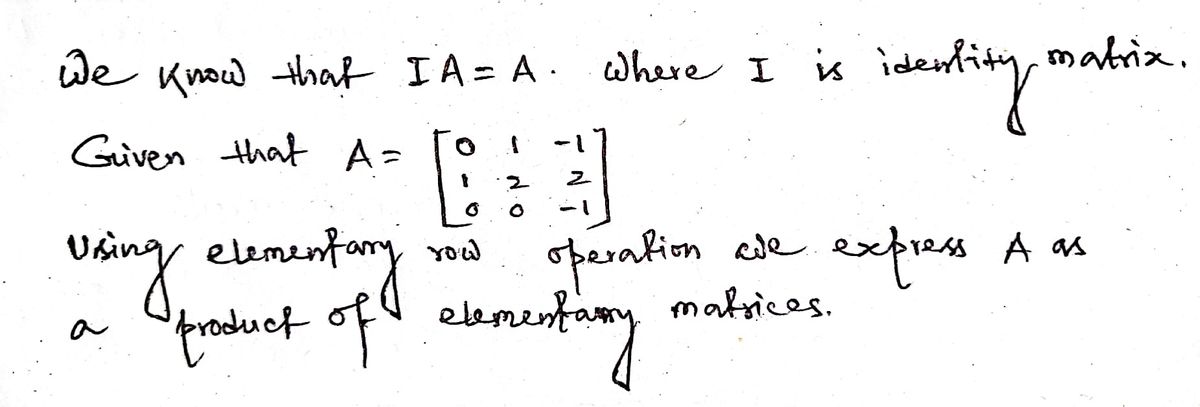 We know that IA = A. Where I is identity matrix.
Given that A = [0 1 -1
1 2 2
0 0 -1]
Using elementary row operation we express A as
a product of elementary matrices.